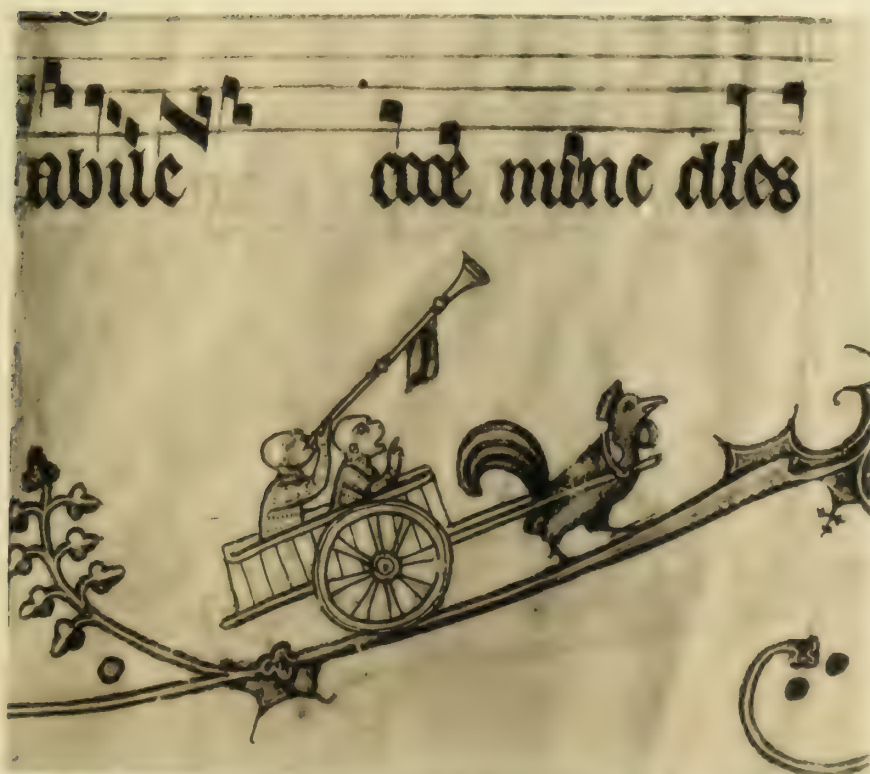 abile ecce nunc dies